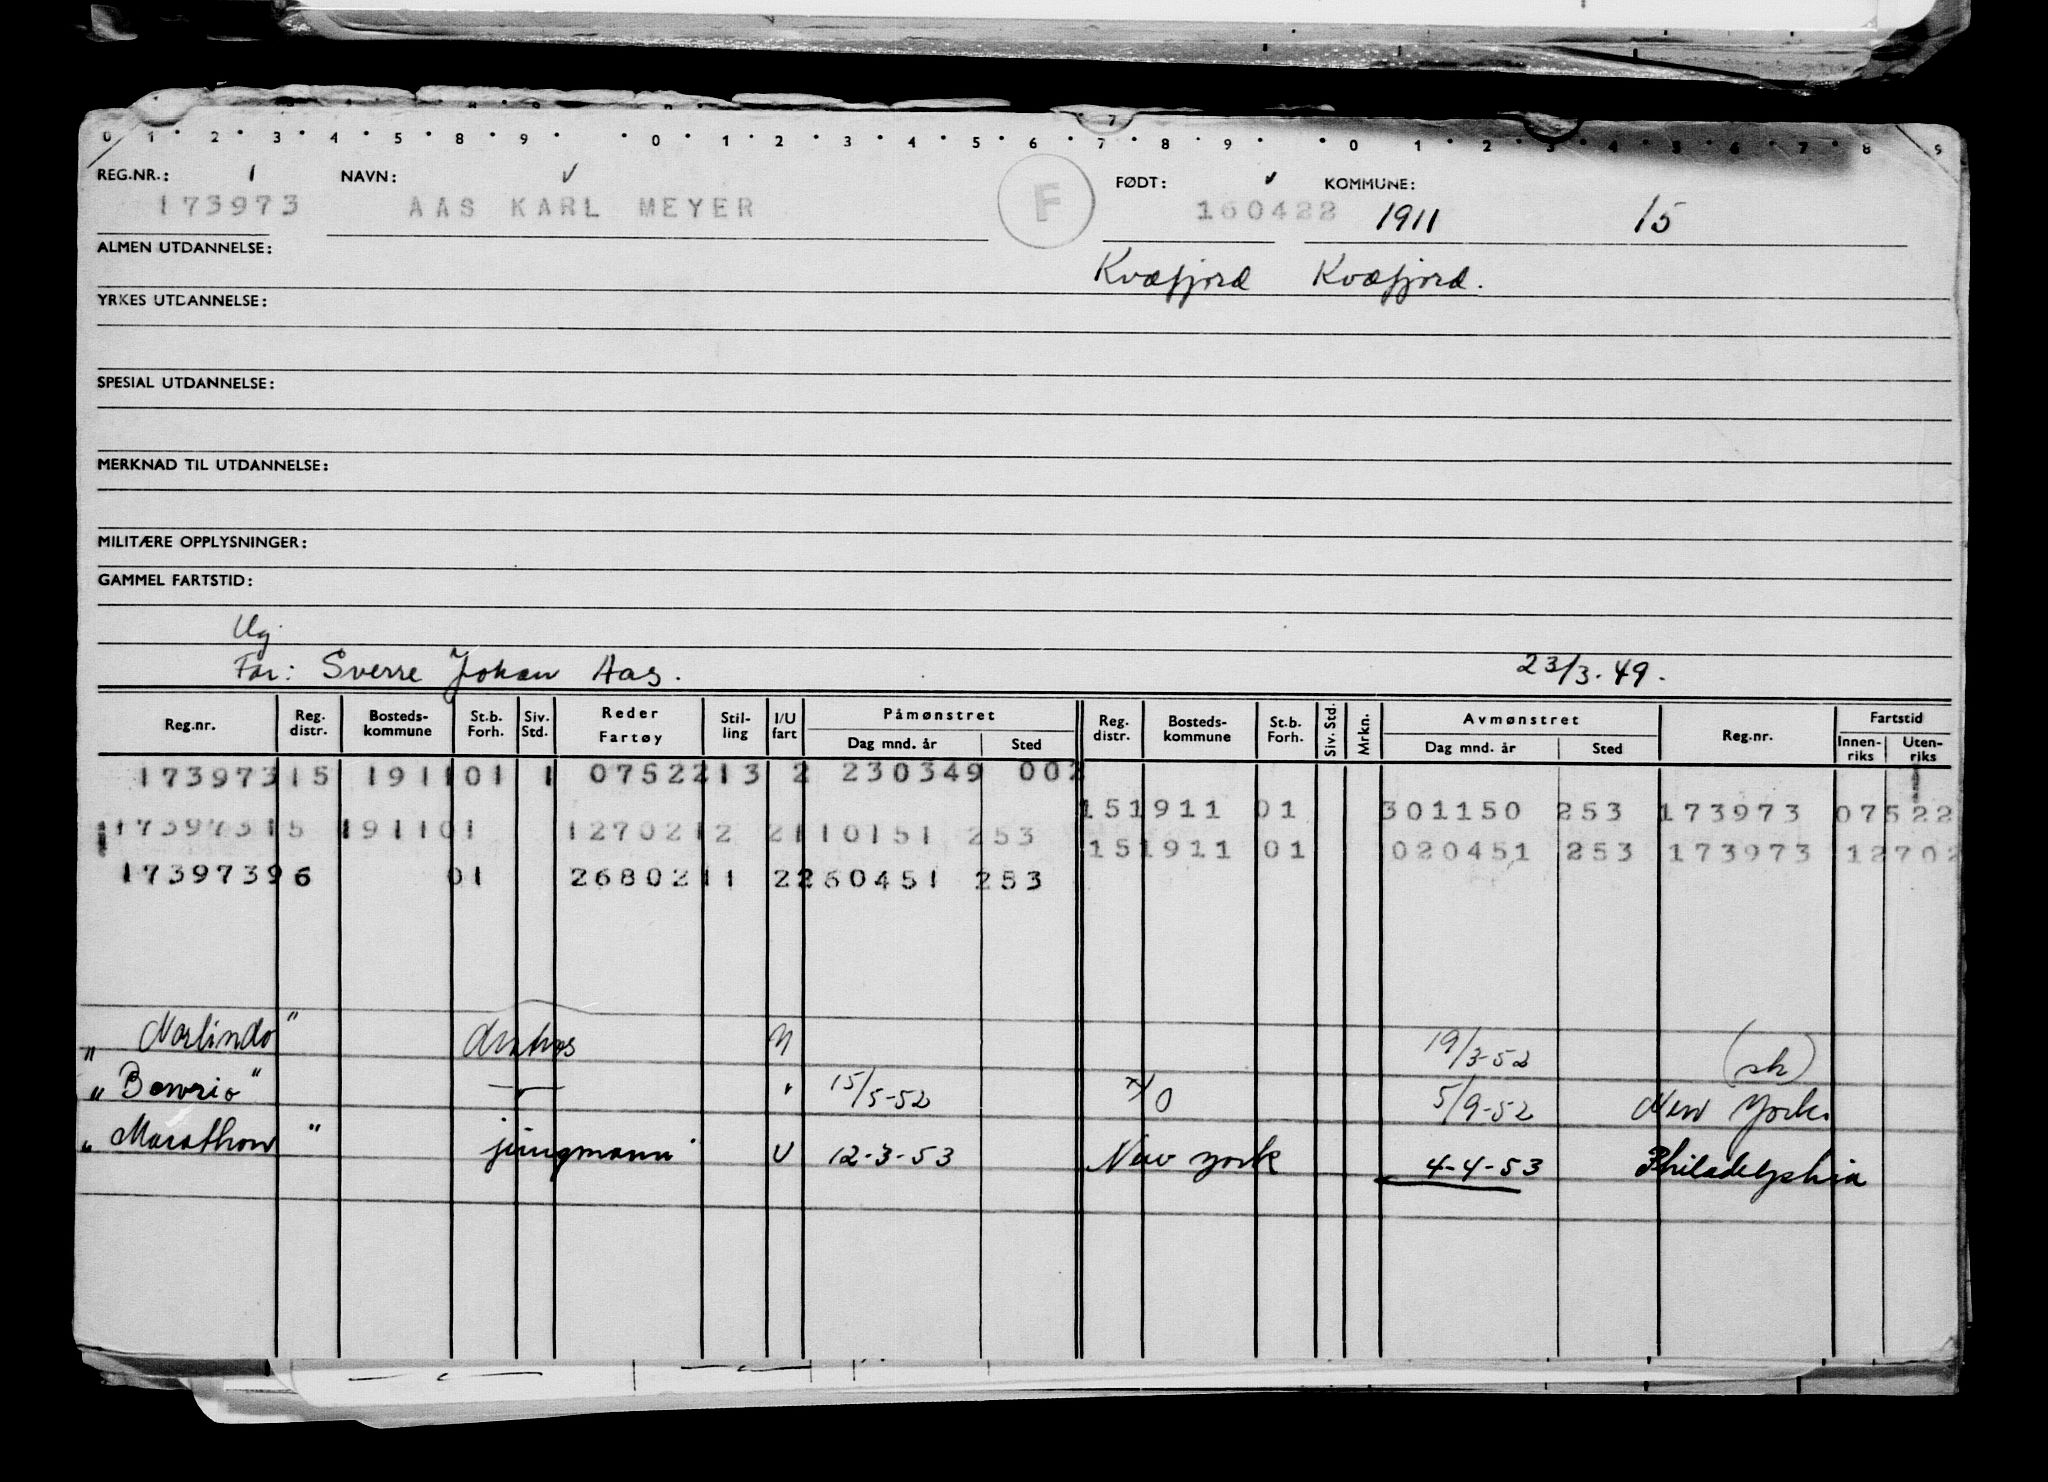 0 1 2 3 4 5 8 9 0 1 2 3 4 5 6 7 8 9 0 1 2 3 4 5 6 7 8 9
REG.NR.: NAVN: FØDT: KOMMUNE:
173973 AAS KARL MEYER F 160422 1911 15
ALMEN UTDANNELSE: Kvæfjord Kvæfjord.
YRKES UTDANNELSE:
SPESIAL UTDANNELSE:
MERKNAD TIL UTDANNELSE:
MILITÆRE OPPLYSNINGER:
GAMMEL FARTSTID:
Ug.
Far: Sverre Johan Aas. 23/3.49.
Reg.nr. Reg. distr. Bosteds-kommune St.b. Forh. Siv. Std. Reder Fartøy Stil-ling I/U fart Påmønstret Dag mnd. år Sted Reg. distr. Bosteds-kommune St.b. Forh. Siv. Std. Mrkn. Avmønstret Dag mnd. år Sted Reg.nr. Fartstid Innen-riks Uten-riks
173973 15 1911 01 1 07522 13 2 230349 002
151911 01 301150 253 173973 07522
173973 15 1911 01 12702 12 2 110151 253
151911 01 020451 253 173973 12702
173973 96 01 26802 11 2 260451 253
"Norlindo" 19/3-52 (sk)
" " 15/5-52 5/9-52 New York.
"Marathon" jungmann U 12-3-53 New York 4-4-53 Philadelphia